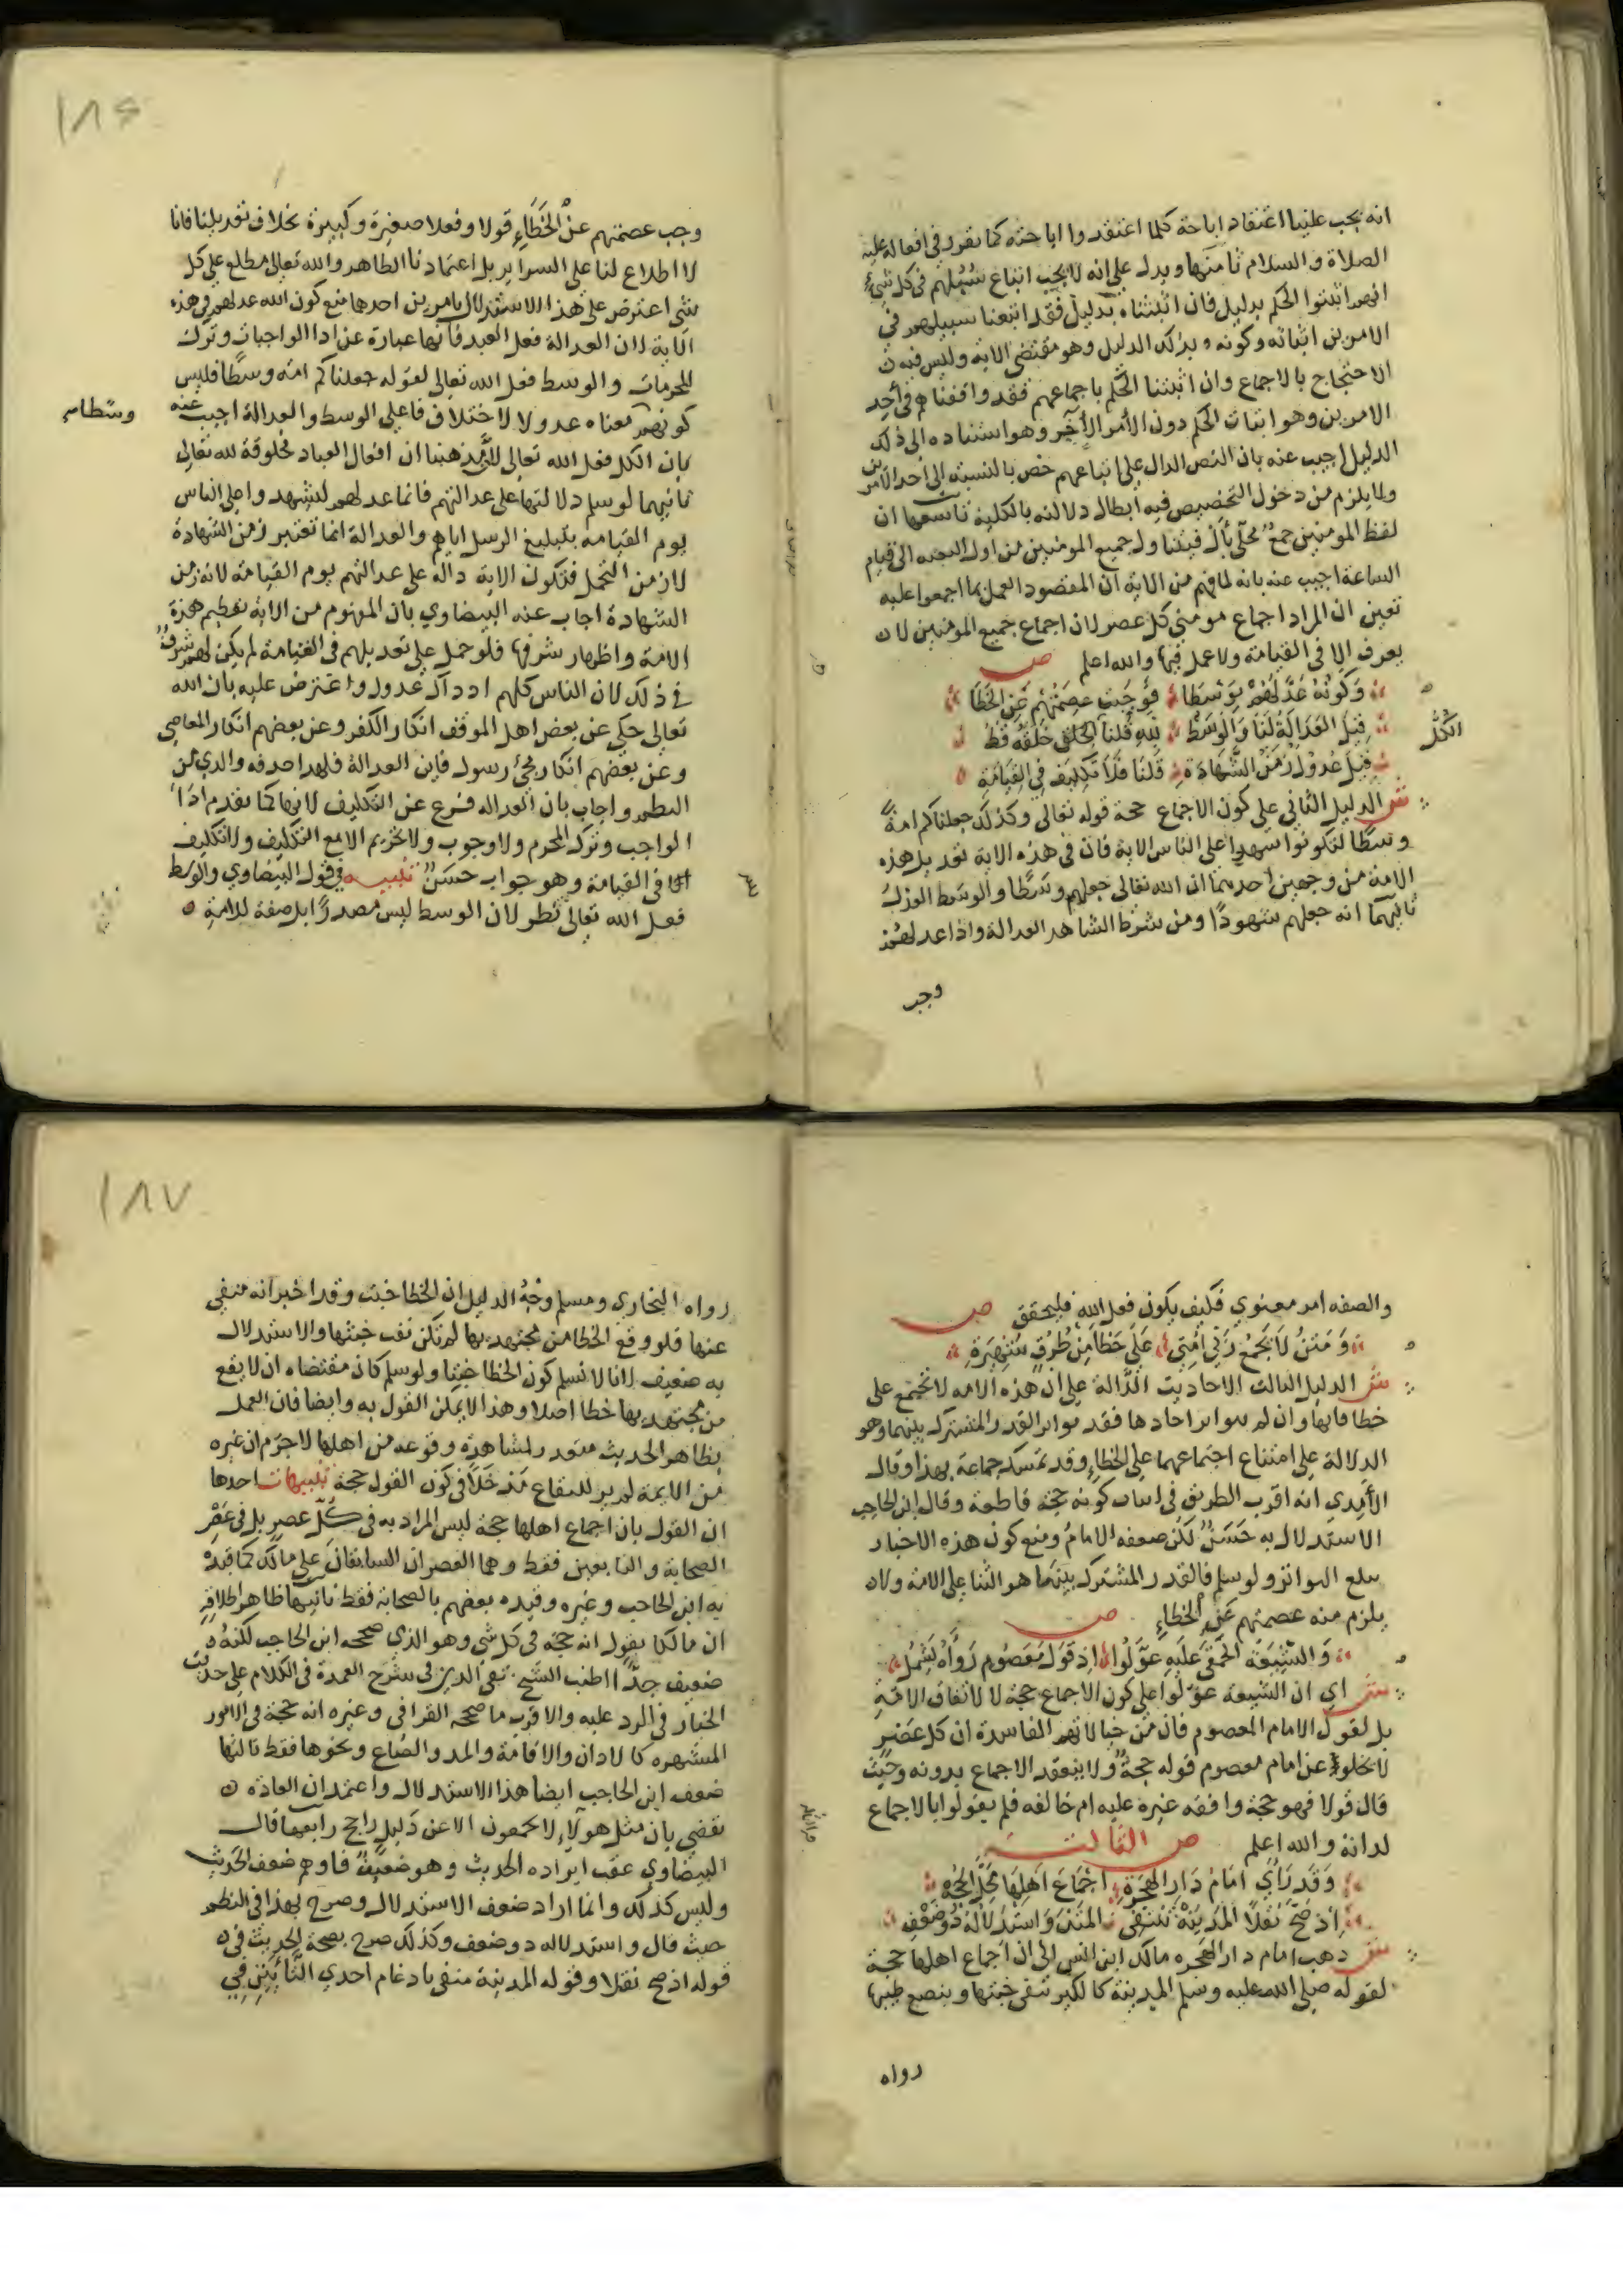 انه يجب علينا اعتقاد اباحة كلما اعتقدوا اباحته كما تقرر في افعاله عليه
الصلاة والسلام ثامنها ويدل على انه لا يجب اتباع سبيلهم في كل شيء
انهم اثبتوا الحكم بدليل فان اثبتناه بدليل فقد اتبعنا سبيلهم في
الامرين اثباته وكونه بذلك الدليل وهو مقتضى الاية وليس فيه
الاحتجاج بالاجماع وان اثبتنا الحكم باجماعهم فقد وافقناهم في أحد
الامرين وهو اثبات الحكم دون الأمر الآخر وهو استناده الى ذلك
الدليل اجيب عنه بان النص الدال على اتباعهم خص بالنسبة الى أحد الامرين
ولا يلزم من دخول التخصيص فيه ابطال دلالته بالكلية تاسعها ان
لفظ المومنين جمع محلى بأل فيتناول جميع المومنين من اول البعثه الى قيام
الساعة اجيب عنه بانه لما فهم من الاية ان المقصود العمل بما اجمعوا عليه
تعين ان المراد اجماع مومني كل عصر لان اجماع جميع المومنين لا
يعرف الا في القيامة ولا عمل فيها والله اعلم ص
وَكَونُهُ عَدَّلَهُمْ بِوَسَطَا فَوَجَبَت عِصمَتُهُم عَنِ الخَطَا
قِيلَ العَدَالَةُ لَنَا وَالوَسَطُ للهِ قُلنَا الخَلق خَلقُه فَقَط
الكُلُّ
قِيلَ عُدُولٌ زَمَنَ الشَّهَادَةِ قُلنَا فَلَا تَكلِيفَ فِي القِيَامَةِ
ش الدليل الثاني على كون الاجماع حجة قوله تعالى وكذلك جعلناكم امةً
وسطًا لتكونوا شهدا على الناس الاية فان في هذه الاية تعديل هذه
الامة من وجهين احدهما ان الله تعالى جعلهم وسَطًا والوسط العدل
ثانيهما انه جعلهم شهودًا ومن شرط الشاهد العدالة واذا عدلهم
وجب
١٨٦
وجب عصمتهم عن الخَطَاءِ قولا وفعلا صغيرة وكبيرة بخلاف تعديلنا فانا
لا اطلاع لنا على السراير بل اعتمادنا الظاهر والله تعالى مطلع على كل
شي اعترض على هذا الاستدلال بامرين احدهما منع كون الله عدلهم في هذه
الاية لان العدالة فعل العبد فانها عبارة عن ادا الواجبات وترك
المحرمات والوسط فعل الله تعالى لقوله جعلناكم امة وسطًا فليس
كونهم معناه عدولا لاختلاف فاعلى الوسط والعدالة اجيب عنه
وسَطًا
بان الكل فعل الله تعالى لأن مذهبنا ان افعال العباد مخلوقة لله تعالى
ثانيهما لو سلم دلالتها على عدالتهم فانما عدلهم ليشهدوا على الناس
يوم القيامة بتبليغ الرسل اياهم والعدالة انما تعتبر زمن الشهادة
لا زمن التحمل فتكون الاية دالة على عدالتهم يوم القيامة لانه زمن
الشهادة اجاب عنه البيضاوي بان المفهوم من الاية تعظيم هذه
الامة واظهار شرفها فلو حمل على تعديلهم في القيامة لم يكن لهم شرف
في ذلك لان الناس كلهم اذ ذاك عدول واعترض عليه بان الله
تعالى حكى عن بعض اهل الموقف انكار الكفر وعن بعضهم انكار المعاصي
وعن بعضهم انكار مجئ رسول فاين العدالة فلهذا حذفه والدي من
النظم واجاب بان العداله فرع عن التكليف لانها كما تقدم ادَا
الواجب وترك المحرم ولا وجوب ولا تحريم الا مع التكليف ولا تكليف
في القيامة وهو جواب حسَنٌ تنبيه في قول البيضاوي والوسط
فعل الله تعالى نظر لان الوسط ليس مصدرًا بل صفة للامة
والصفه امر معنوي فكيف يكون فعل الله فليحقق ص
وَمَتنُ لَا يَجمَعُ رَبِّي اُمَّتِي عَلَى خَطَأ مِن طُرُقٍ مُشتَهِرَةِ
ش الدليل الثالث الاحاديث الدَّالة على ان هذه الامه لا تجتمع على
خطا فانها وان لم يتواتر احادها فقد تواتر القدر المشترك بينهما وهو
الدلالة على امتناع اجتماعهما على الخطاءِ وقد تمسك جماعة بهذا وقال
الآمدي انه اقرب الطريق في اثبات كونه حجة قاطعة وقال ابن الحاجب
الاستدلال به حَسَنٌ لكن ضعفه الامامُ ومنع كون هذه الاخبار
تبلغ التواتر ولو سلم فالقدر المشترك بينهما هو الثنا على الامة ولا
يلزم منه عصمتهم عَن الخطاءِ ص
وَالشِّيعَةُ الحَمقَى عَلَيهِ عَوَّلُوا اِذ قَولُ مَعصُومٍ رَأَوهُ يَشمُلُ
ش اي ان الشيعة عوّلوا على كون الاجماع حجة لا لاتفاق الامة
بل لقول الامام المعصوم فان من خيالاتهم الفاسدة ان كل عصر
لا يخلو عن امام معصوم قوله حجةٌ ولا ينعقد الاجماع بدونه وحيث
قال قولا فهو حجة وافقه غيره عليه ام خالفه فلم يقولوا بالاجماع
لذاته والله اعلم ص الثالثة
وَقَد رَأَى اِمَامُ دَارِ الهِجرَةِ اِجمَاعَ اَهلِهَا مَحَلَّ الحُجَّةِ
اِذ صَحَّ نَقلًا المَدِينَةُ تَنتَفِي المَتنَ وَاستِدلَالُهُ ذُو ضَعفِ
ش ذهب امام دار الهجره مالك ابن انس الى ان اجماع اهلها حجة
لقوله صلى الله عليه وسلم المدينة كالكير تنفي خبثها وينصع طيبها
رواه
١٨٧
رواه البخاري ومسلم وجهُ الدليل ان الخطا خبث وقد اخبر انه منفي
عنها فلو وقع الخطا من مجتهديها لم تكن تنف خبثها والاستدلال
به ضعيف لانا لا نسلم كون الخطا خبثا ولو سلم كان مقتضاه ان لا يقع
من مجتهديها خطا اصلا وهذا لا يمكن القول به وايضا فان العمل
بظاهر الحديث متعذر لمشاهدة وقوعه من اهلها لا جرم ان غيره
من الايمة لم ير للبقاع مَدخَلًا في كون القول حجة تنبيهات احدها
ان القول بان اجماع اهلها حجة ليس المراد به في كل عصرٍ بل في عصر
الصحابة والتابعين فقط وهما العصران السابقان على مالك كما قيده
به ابن الحاجب وغيره وقيده بعضهم بالصحابة فقط ثانيها ظاهر اطلاقه
ان مالكا يقول انه حجة في كل شي وهو الذي صححه ابن الحاجب لكنه
ضعيف جدًّا اطنب الشيخ تقي الدين في شرح العمدة في الكلام على حديث
الخيار في الرد عليه والاقرب ما صححه القرافي وغيره انه حجة في الامور
المشتهره كالاذان والاقامة والمد والصاع ونحوها فقط ثالثها
ضعف ابن الحاجب ايضا هذا الاستدلال واعتمد ان العاده
تقضي بان مثل هولآءِ لا يجمعون الا عن دليل راجح رابعها قال
البيضاوي عقب ايراده الحديث وهو ضعيفٌ فاوهم ضعف الحديث
وليس كذلك وانما اراد ضعف الاستدلال وصرح بهذا في النظم
حيث قال واستدلاله ذو ضعف وكذلك صرح بصحة الحديث في
قوله اذ صح نقلا وقوله المدينة منفي بادغام احدي التَّائَينِ فِي